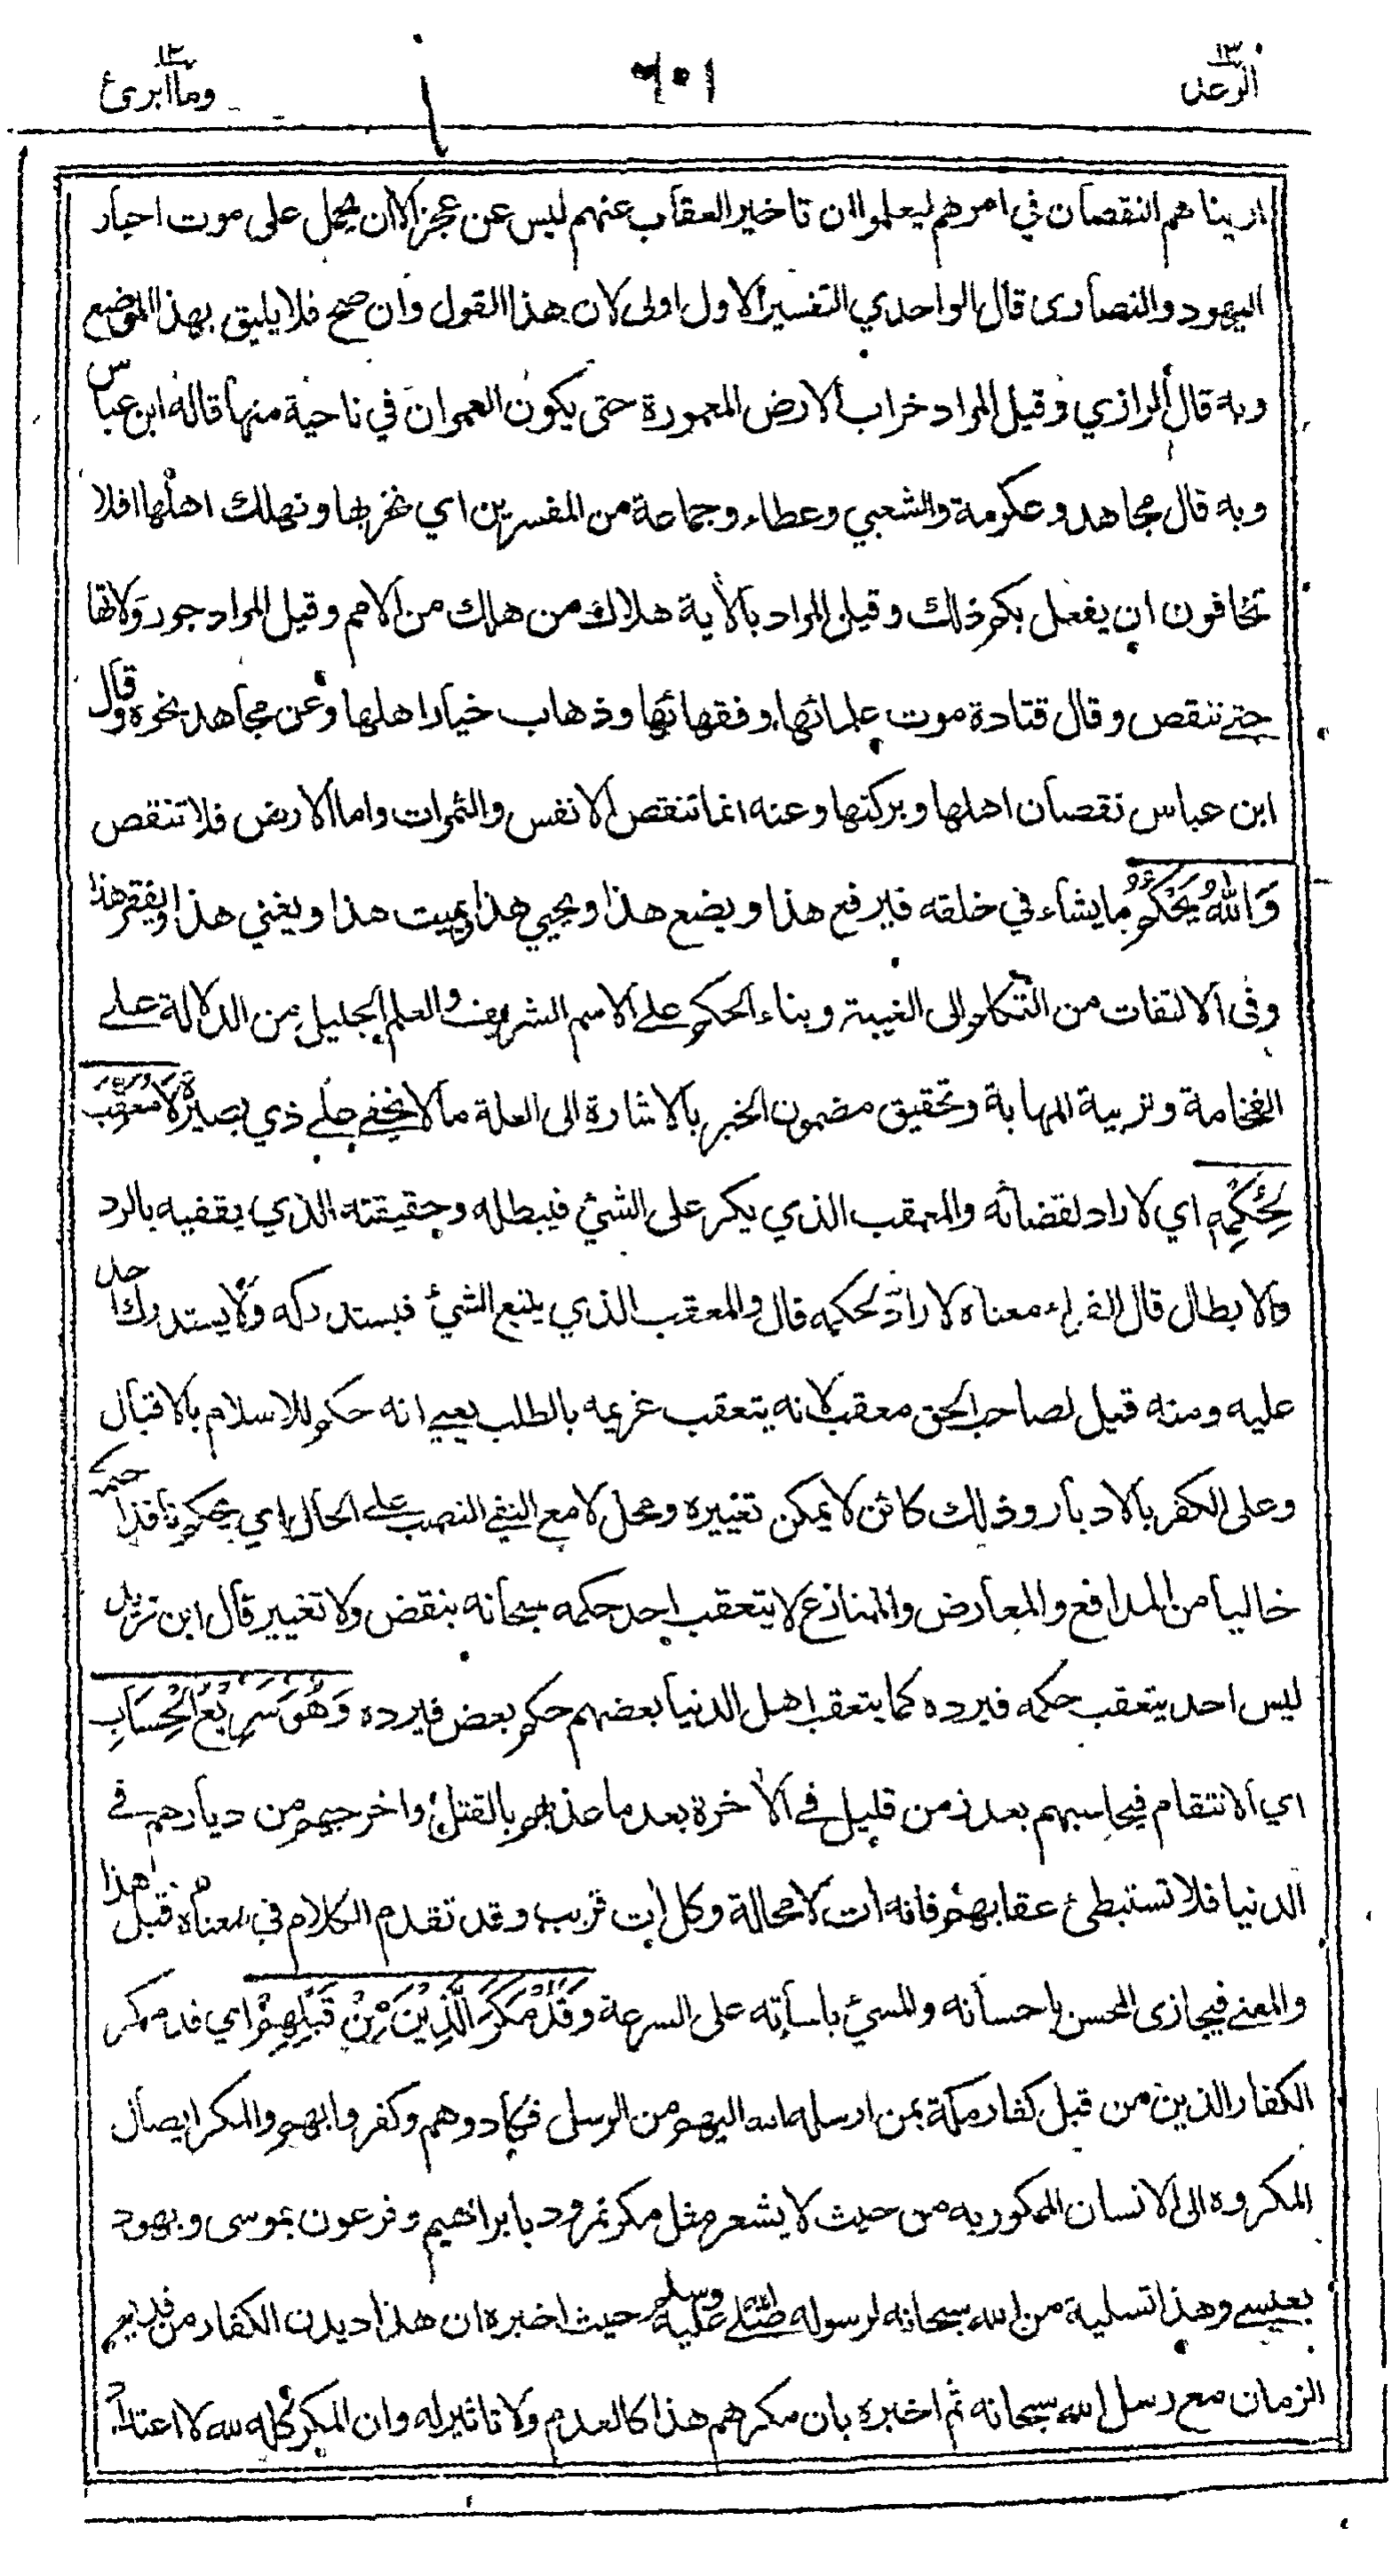 الرعد ١٣
٦٠١
وما ابرئ ١٣
اريناهم النقصان في امرهم ليعلموا ان تاخير العقاب عنهم ليس عن عجز الا ان يحمل على موت احبار
اليهود والنصارى قال الواحدي التفسير الاول اولى لان هذا القول وان صح فلا يليق بهذا الموضع
وبه قال الرازي وقيل المراد خراب الارض المعمورة حتى يكون العمران في ناحية منها قاله ابن عباس
وبه قال مجاهد وعكرمة والشعبي وعطاء وجماعة من المفسرين اي نخربها ونهلك اهلها افلا
تخافون ان يفعل بكم ذلك وقيل المراد بالاية هلاك من هلك من الامم وقيل المراد جور ولاتها
حتى تنقص وقال قتادة موت علمائها وفقهائها وذهاب خيار اهلها وعن مجاهد نحوه وقال
ابن عباس نقصان اهلها وبركتها وعنه انما تنقص الانفس والثمرات واما الارض فلا تنقص
وَاللّٰهُ يَحْكُمُ ما يشاء في خلقه فيرفع هذا ويضع هذا ويحيي هذا ويميت هذا ويغني هذا ويفقر هذا
وفي الالتفات من التكلم الى الغيبة وبناء الحكم على الاسم الشريف والعلم الجليل من الدلالة على
الفخامة وتربية المهابة وتحقيق مضمون الخبر بالاشارة الى العلة ما لا يخفى على ذي بصيرة لَا مُعَقِّبَ
لِحُكْمِهٖ اي لا راد لقضائه والمعقب الذي يكر على الشئ فيبطله وحقيقته الذي يقفيه بالرد
والابطال قال الفراء معناه لا رادّ لحكمه قال والمعقب الذي يتبع الشئ فيستدركه ولا يستدرك احد
عليه ومنه قيل لصاحب الحق معقب لانه يتعقب غريمه بالطلب يعني انه حكم للاسلام بالاقبال
وعلى الكفر بالادبار وذلك كائن لا يمكن تغييره ومحل لا مع النفي النصب على الحال اي يحكم نافذا حكمه
خاليا من المدافع والمعارض والمنازع لا يتعقب احد حكمه سبحانه بنقض ولا تغيير قال ابن زيد
ليس احد يتعقب حكمه فيرده كما يتعقب اهل الدنيا بعضهم حكم بعض فيرده وَهُوَ سَرِيْعُ الْحِسَابِ
اي الانتقام فيحاسبهم بعد زمن قليل في الاخرة بعد ما عذبهم بالقتل واخرجهم من ديارهم في
الدنيا فلا تستبطئ عقابهم فانه ات لا محالة وكل ات قريب وقد تقدم الكلام في معناه قبل هذا
والمعنى فيجازى المحسن باحسانه والمسئ باساءته على السرعة وَقَدْ مَكَرَ الَّذِيْنَ مِنْ قَبْلِهِمْ اي قد مكر
الكفار الذين من قبل كفار مكة بمن ارسله الله اليهم من الرسل فكادوهم وكفروا بهم والمكر ايصال
المكروه الى الانسان الممكور به من حيث لا يشعر مثل مكر نمرود بابراهيم وفرعون بموسى ويهود
بعيسى وهذا تسلية من الله سبحانه لرسوله صلى الله عليه وسلم حيث اخبره ان هذا ديدن الكفار من قديم
الزمان مع رسل الله سبحانه ثم اخبره بان مكرهم هذا كالعدم ولا تاثير له وان المكر كله لله لا اعتداد